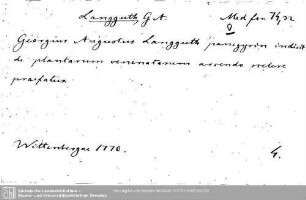 Langguth G. A.
Med. fan 74,32
Georgius Augustus Langguth panegyrin indicit
de plantarum venenatarum arcendo scelere
praefatur
Wittenbergae 1770.
4.
Sächsische Landesbibliothek -
Staats- und Universitätsbibliothek Dresden